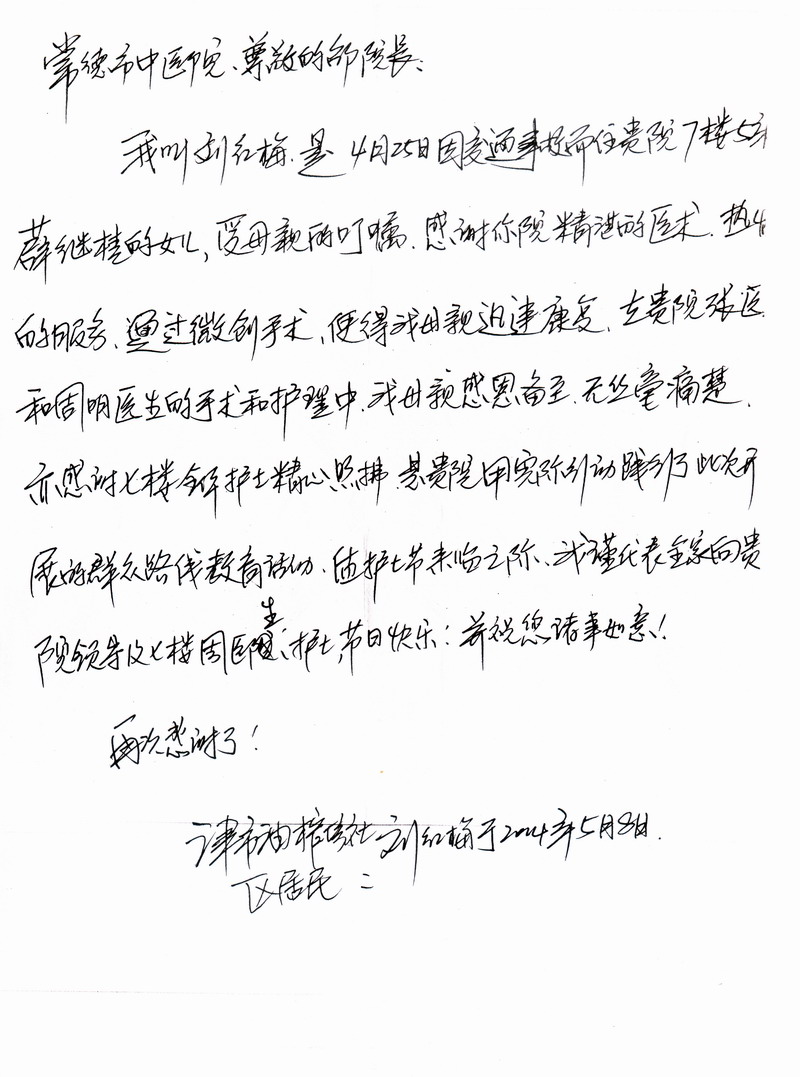 常德市中医院、尊敬的邹院长:
我叫刘红梅.是4月25日因交通事故而住贵院7楼5床
薜继桂的女儿,受母亲的叮嘱.感谢你院精湛的医术.热情
的服务、通过微创手术,使得我母亲迅速康复.在贵院张医
和周明医生的手术和护理中.我母亲感恩备至.无丝毫痛楚.
亦感谢七楼全体护士精心照拂.是贵院用实际行动践行了此次开
展的群众路线教育活动.值护士节来临之际、我谨代表全家向贵
院领导及七楼周医生、护士,节日快乐:并祝您诸事如意!
再次感谢了!
津市油榨街社 刘红梅于2014年5月8日.
区居民: